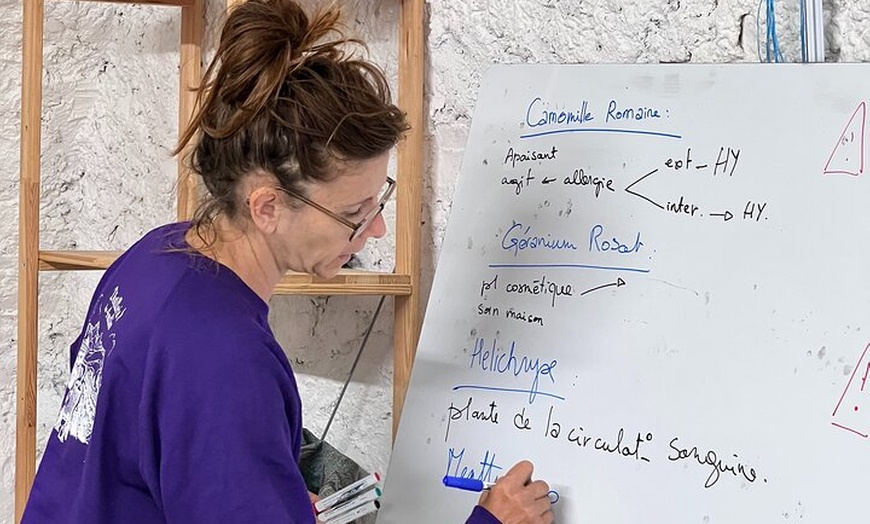 Camomille Romaine :
Apaisant
agit ← allergie
ext _ HY
inter. → HY.
Géranium Rosat :
pl cosmétique
soin maison
Helichryse :
plante de la circulat° sanguine.